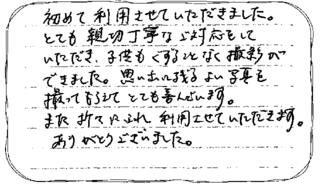 初めて利用させていただきました。
とても親切丁寧な対応をして
いただき、子供もぐずることなく撮影が
できました。思い出に残るよい写真を
撮ってもらえて とても喜んでいます。
また 折にふれ 利用させていただきます。
ありがとうございました。